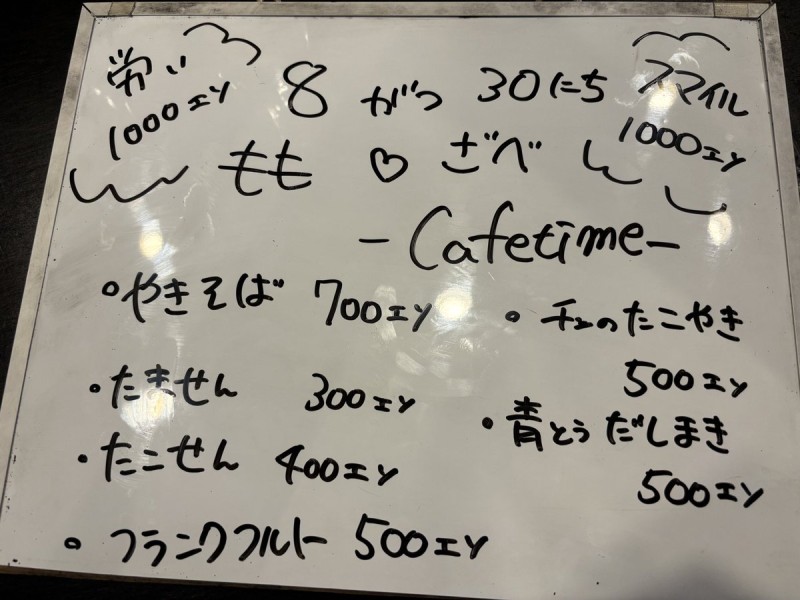 労い
1000エン
8がつ30にち
スマイル
1000エン
もも♡ざべ
-Cafetime-
・やきそば 700エン
・たません 300エン
・たこせん 400エン
・フランクフルト 500エン
・チェのたこやき
500エン
・青とうだしまき
500エン